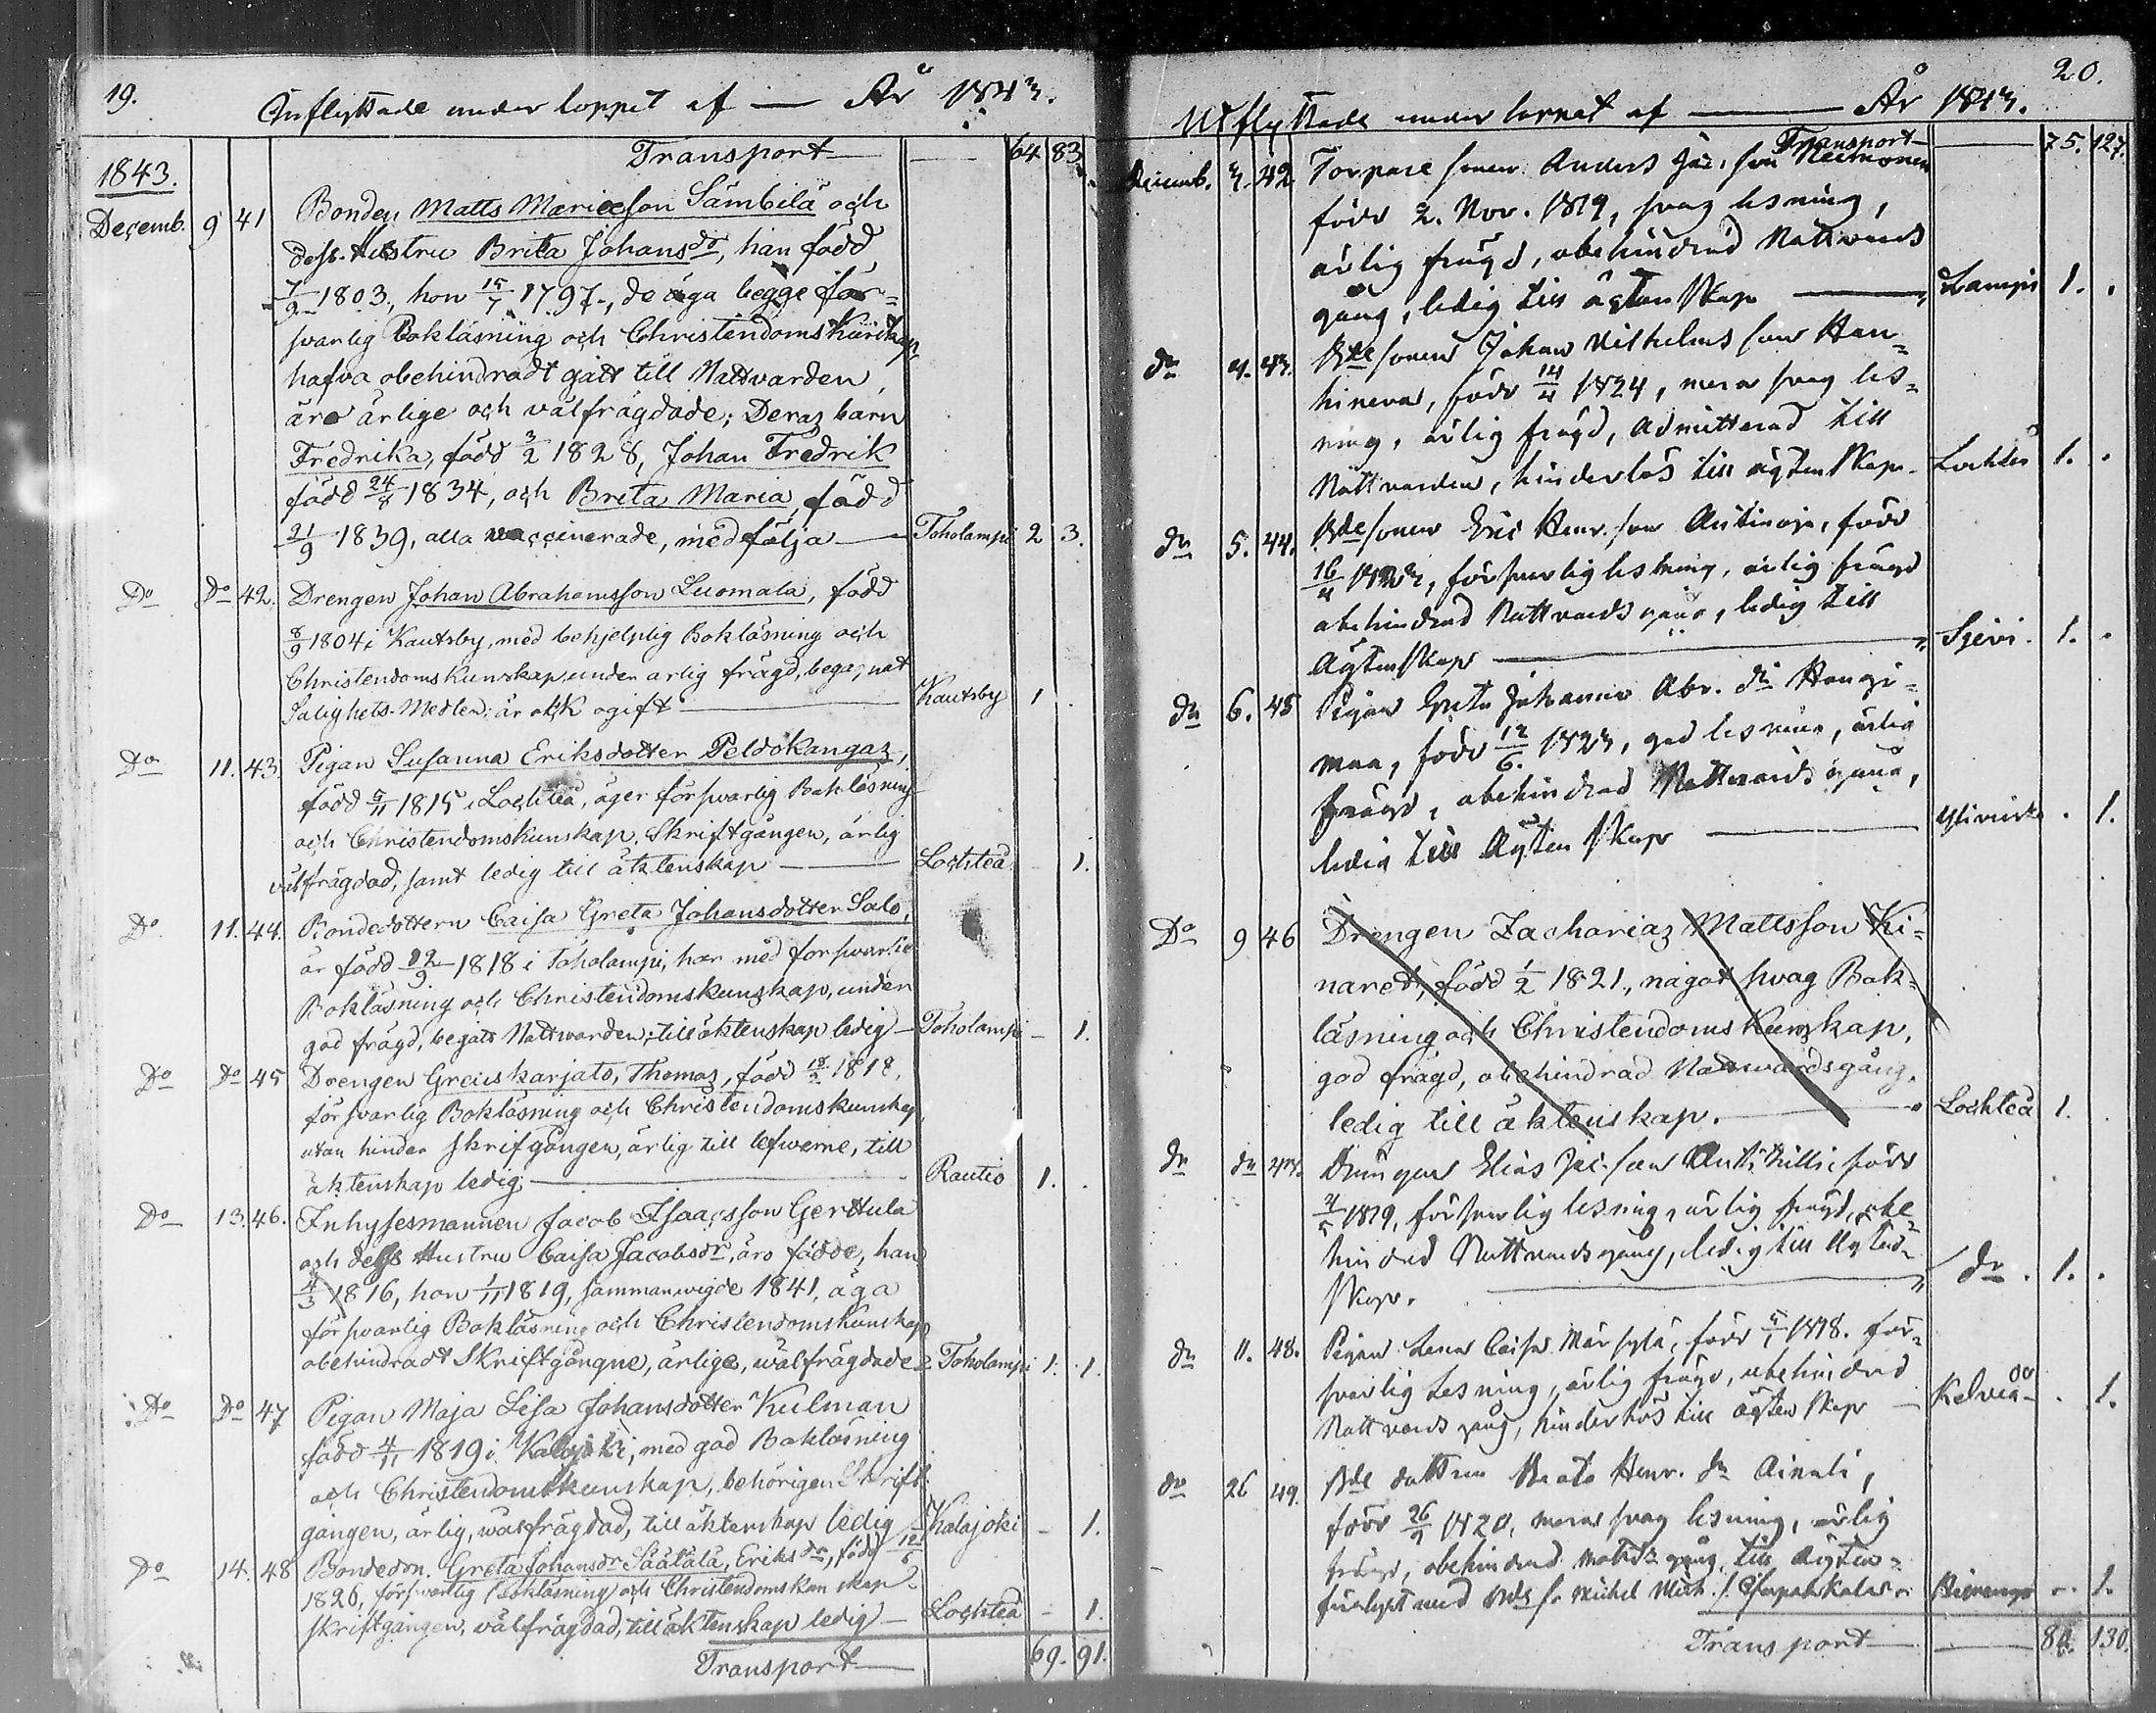 19.
Inflyttade under loppet af — År 1843.
Transport — 64 83.
1843.
Decemb. 9 41 Bonden Matts Mariæson Sämbilä och
dess Hustru Brita Johansdr, han född
7/9 1803, hon 15/7 1797, de äga begge för=
svarlig Bokläsning och Christendoms Kundskap,
hafva obehindradt gått till Nattvarden,
äro ärlige och välfrägdade; Deras barn
Fredrika, född 3/2 1828, Johan Fredrik
född 24/8 1834, och Brita Maria, född
21/9 1839, alla vaccinerade, medfölja — Toholampi 2 3.
Do Do 42. Drengen Johan Abrahamsson Luomala, född
8/9 1804 i Kautsby, med behjelplig Bokläsning och
Christendoms Kunskap, under ärlig frägd, begagnat
Salighets Medlen; är ock ogift — Kautsby 1 .
Do 11. 43. Pigan Susanna Eriksdotter Peldokangas,
född 5/11 1815 i Lochteå, äger försvarlig Bokläsning
och Christendomskunskap, Skriftgången, ärlig
välfrägdad, samt ledig till äktenskap — Lochteå — 1.
Do 11. 44. Bondedottern Caisa Greta Johansdotter Salo,
är född 12/9 1818 i Toholampi, har med försvarlig
Bokläsning och Christendomskunskap, under
god frägd, begått Nattvarden; till äktenskap ledig — Toholampi — 1.
Do Do 45 Drengen Greuskarjato, Thomas, född 18/2 1818,
försvarlig Bokläsning och Christendomskunskap,
utan hinder skriftgången, ärlig till lefverne, till
äktenskap ledig — Rautio 1. .
Do 13. 46. Inhysesmannen Jacob Isaacsson Gerttula
och dess Hustru Caisa Jacobsdr, äro födde, han
4/3 1816, hon 1/11 1819, sammanvigde 1841, äga
försvarlig Bokläsning och Christendomskunskap
obehindradt Skriftgångne, ärlige, wälfrägdade Toholampi 1. 1.
Do Do 47 Pigan Maja Lisa Johansdotter Kulman
född 4/11 1819 i Kalajoki, med god Bokläsning
och Christendomskunskap, behörigen Skrift
gången, ärlig, wälfrägdad, till äktenskap ledig — Kalajoki — 1.
Do 14. 48 Bondedon. Greta Johansdr Säätälä, Eriksdr, född 12/6
1826, försvarlig Bokläsning och Christendomskunskap
skriftgången, välfrägdad, till äktenskap ledig — Lochteå — 1.
Transport — 69. 91.
20.
Utflyttade under loppet af — År 1843.
Transport — 75. 127.
Decemb. 3. 42 Torpare sonen Anders son Neimonen
född 2. Nov. 1819, svag lesning,
ärlig frägd, obehindrad Nattvards
gång, ledig till ägtenskap — Lampi 1. .
do 4. 43. Bde sonen Johan Vilhelms son Han=
hinewa, född 14/4 1824, mera svag les=
ning, ärlig frägd, Admitterad till
Nattvarden, hinderlös till ägtenskap. Lochteå 1. .
do 5. 44. Bde sonen Eric Henr. son Antinoja, född
16/4 1823, försvarlig lesning, ärlig frägd
obehindrad Nattvards gång, ledig till
Ägtenskap — Sjevi. 1. .
do 6. 45 Pigan Greta Johanna Abr. dr Hangi=
maa, född 12/6 1823, god lesning, ärlig
frägd, obehindrad Nattvards gång,
ledig till Ägtenskap — Ylivieska . 1.
Do 9 46 Drengen Zacharias Mattsson Ki=
nared, född 1/2 1821, något svag Bok=
läsning och Christendoms Kunskap,
god frägd, obehindrad Nattwardsgång,
ledig till äktenskap. — Lochteå 1.
do do 47. Drängen Elias Jac. son född
4/5 1819, försvarlig lesning, ärlig frägd, obe=
hindrad Nattvards gång, ledig till Ägten=
skap. — do. 1. .
do 11. 48. Pigan Lena Caisa Märsylä, född 5/1 1818. för=
svarlig Lesning, ärlig frägd, obehindrad
Nattvards gång, hinderlös till ägtenskap — Kelviå — . 1.
do 26 49. Bde dottren Beata Henr. dr Ainali,
född 26/9 1820, mera svag lesning, ärlig
frägd, obehindrad gång, till Ägten=
med Bde s. Michel Mich. s. . 1.
Transport — 80. 130.